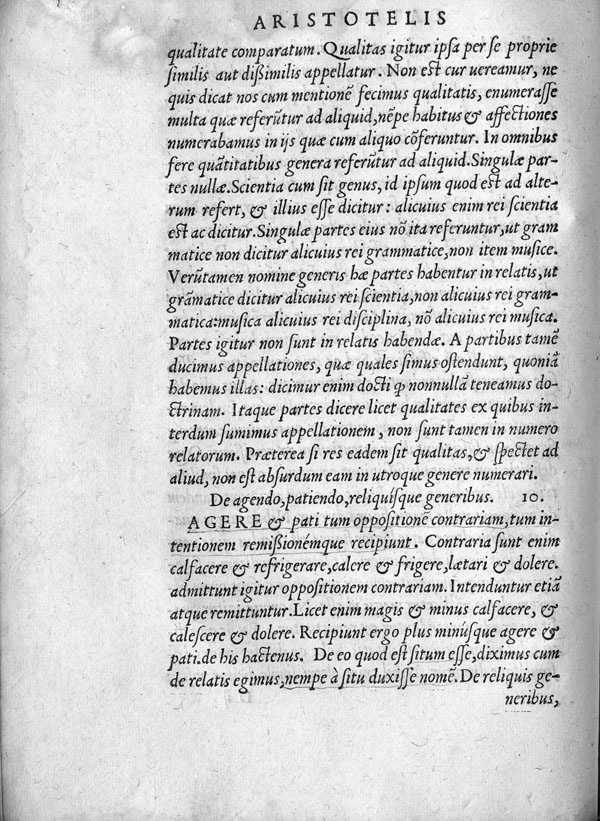 ARISTOTELIS
qualitate comparatum. Qualitas igitur ipsa per se proprie
similis aut dißimilis appellatur. Non est cur uereamur, ne
quis dicat nos cum mentionē fecimus qualitatis, enumerasse
multa quæ referūtur ad aliquid, nēpe habitus & affectiones
numerabamus in ijs quæ cum aliquo cōferuntur. In omnibus
fere quātitatibus genera referūtur ad aliquid. Singulæ par-
tes nullæ. Scientia cum sit genus, id ipsum quod est ad alte-
rum refert, & illius esse dicitur: alicuius enim rei scientia
est ac dicitur. Singulæ partes eius nō ita referuntur, ut gram
matice non dicitur alicuius rei grammatice, non item musice.
Verūtamen nomine generis hæ partes habentur in relatis, ut
grāmatice dicitur alicuius rei scientia, non alicuius rei gram-
matica: musica alicuius rei disciplina, nō alicuius rei musica.
Partes igitur non sunt in relatis habendæ. A partibus tamē
ducimus appellationes, quæ quales simus ostendunt, quoniā
habemus illas: dicimur enim docti ꝙ nonnullā teneamus do-
ctrinam. Itaque partes dicere licet qualitates ex quibus in-
terdum sumimus appellationem, non sunt tamen in numero
relatorum. Præterea si res eadem sit qualitas, & spectet ad
aliud, non est absurdum eam in utroque genere numerari.
De agendo, patiendo, reliquisque generibus. 10.
AGERE & pati tum oppositionē contrariam, tum in-
tentionem remißionémque recipiunt. Contraria sunt enim
calfacere & refrigerare, calere & frigere, lætari & dolere.
admittunt igitur oppositionem contrariam. Intenduntur etiā
atque remittuntur. Licet enim magis & minus calfacere, &
calescere & dolere. Recipiunt ergo plus minusque agere &
pati. de his hactenus. De eo quod est situm esse, diximus cum
de relatis egimus, nempe à situ duxisse nomē. De reliquis ge-
neribus,